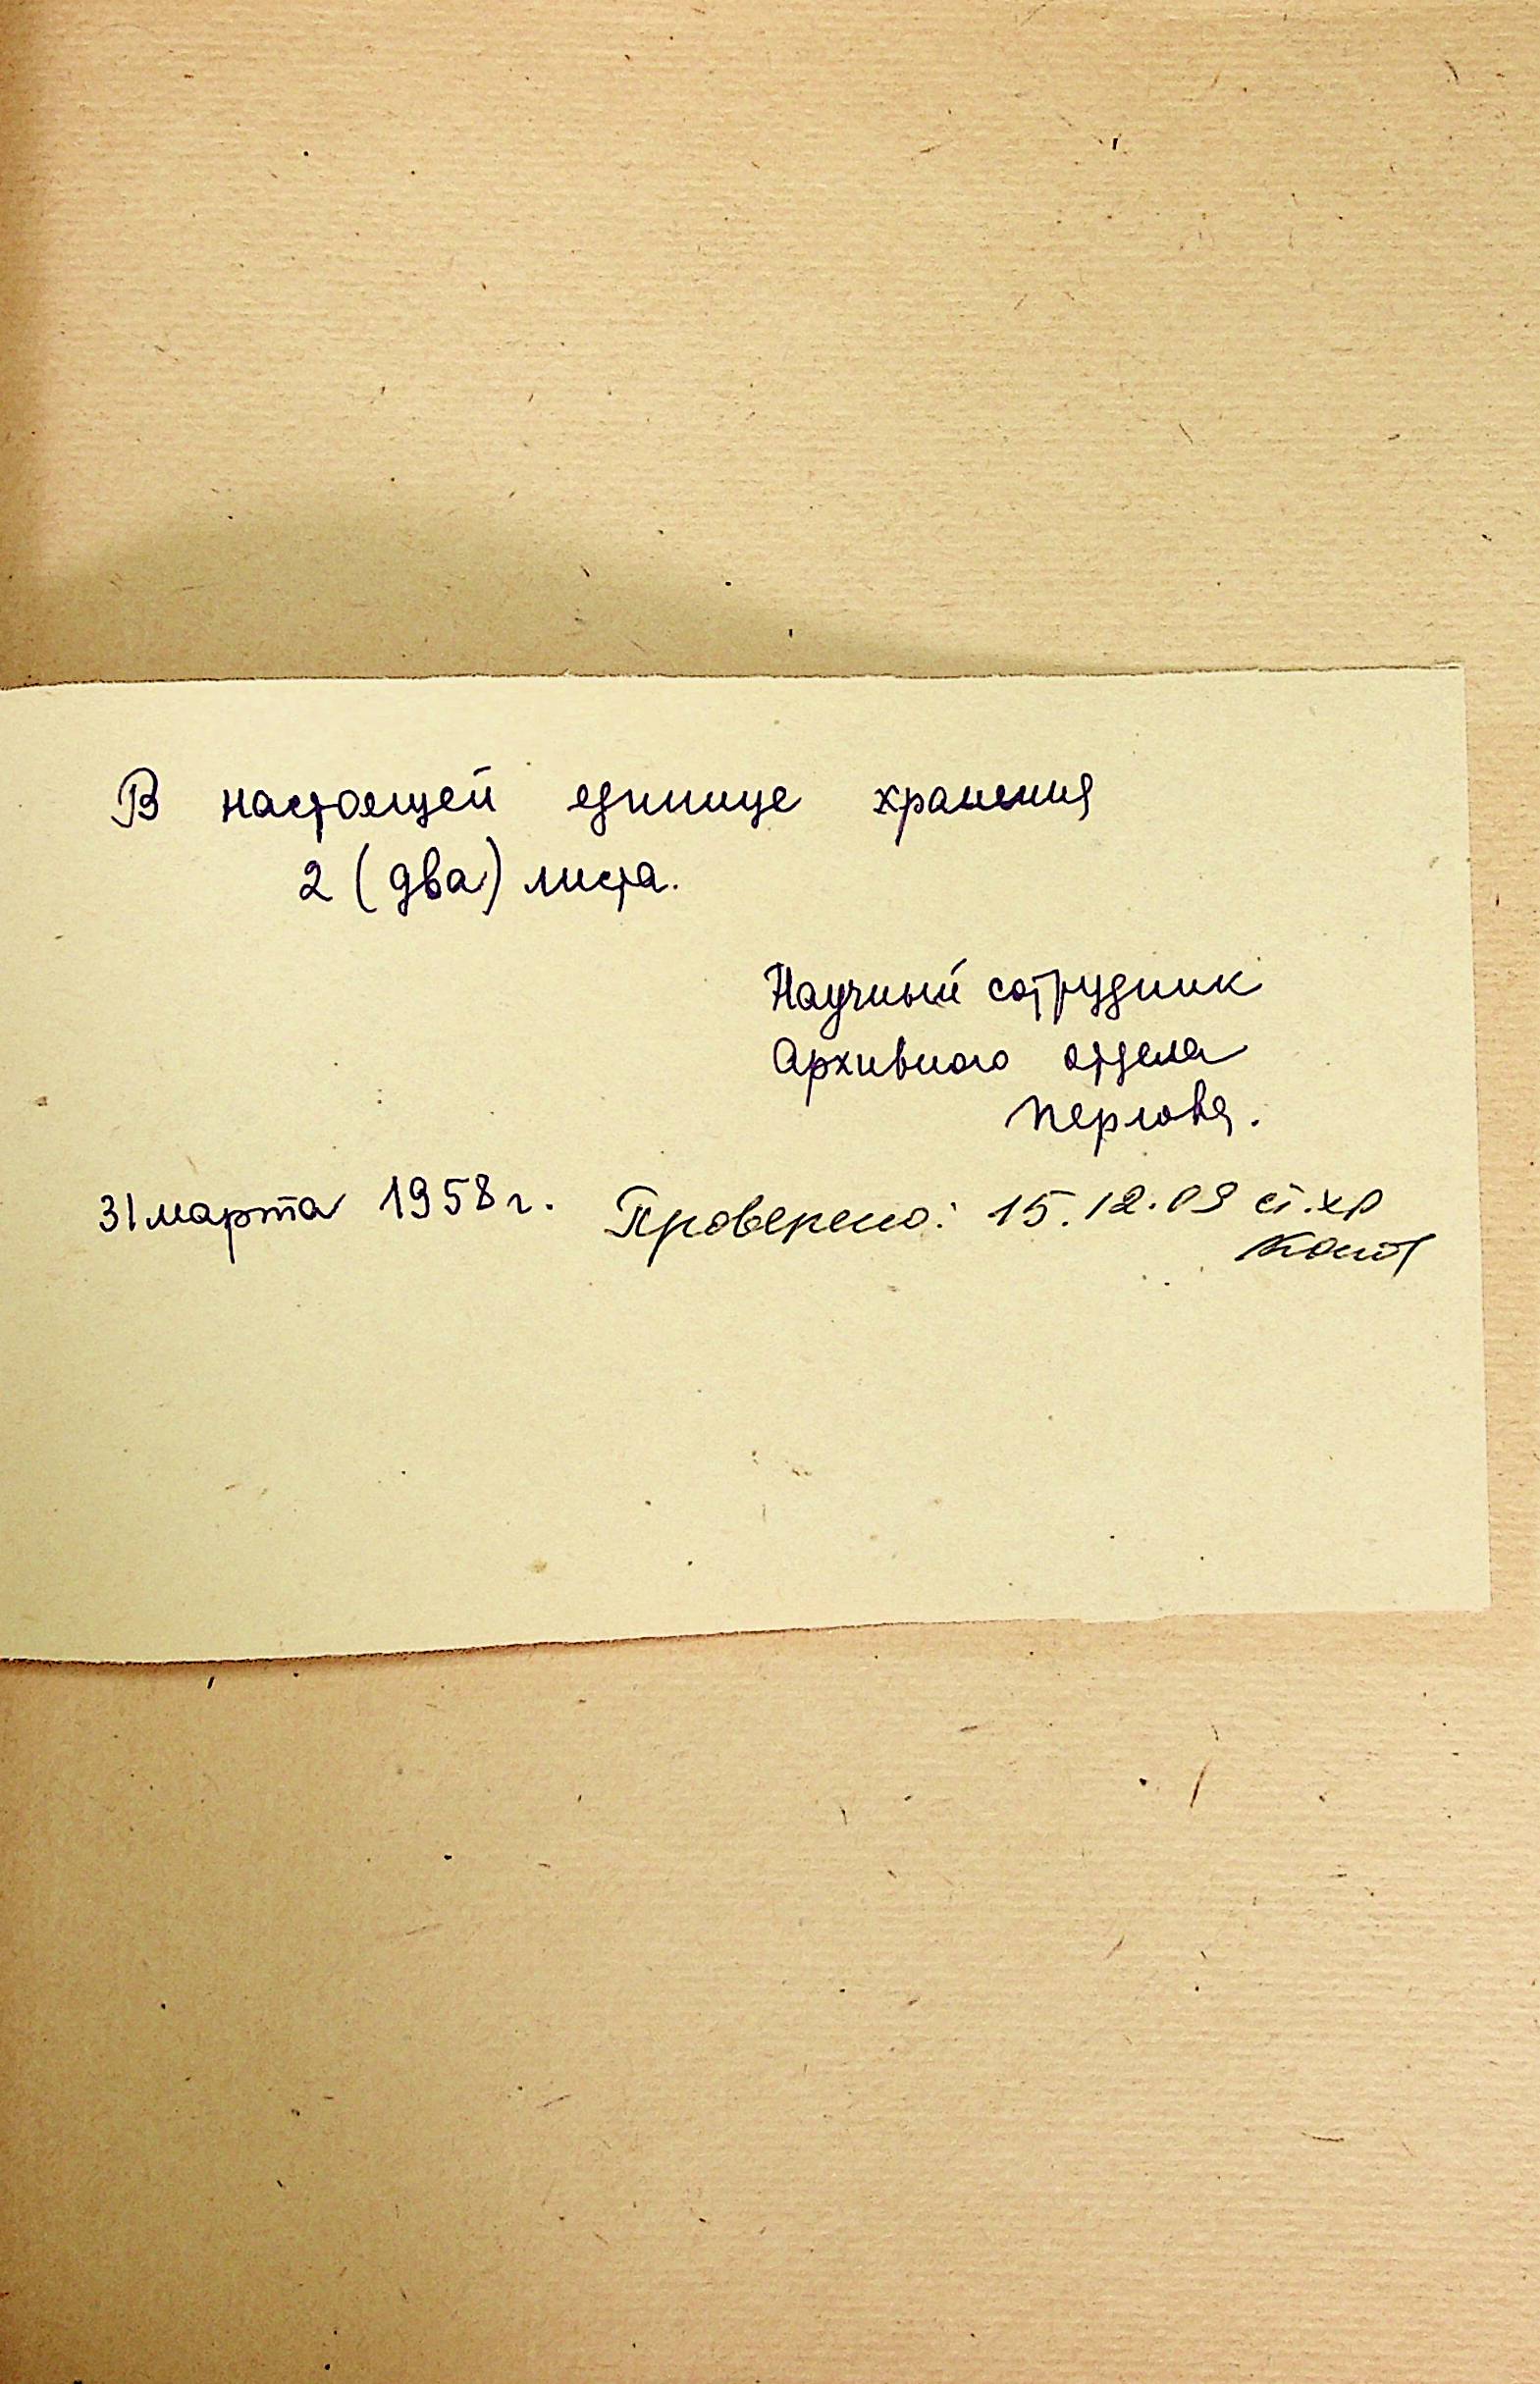 В настоящей единице хранения
2 (два) листа.
Научный сотрудник
Архивного отдела
Перлова.
31 марта 1958 г.
Проверено: 15.12.09 ст. хр